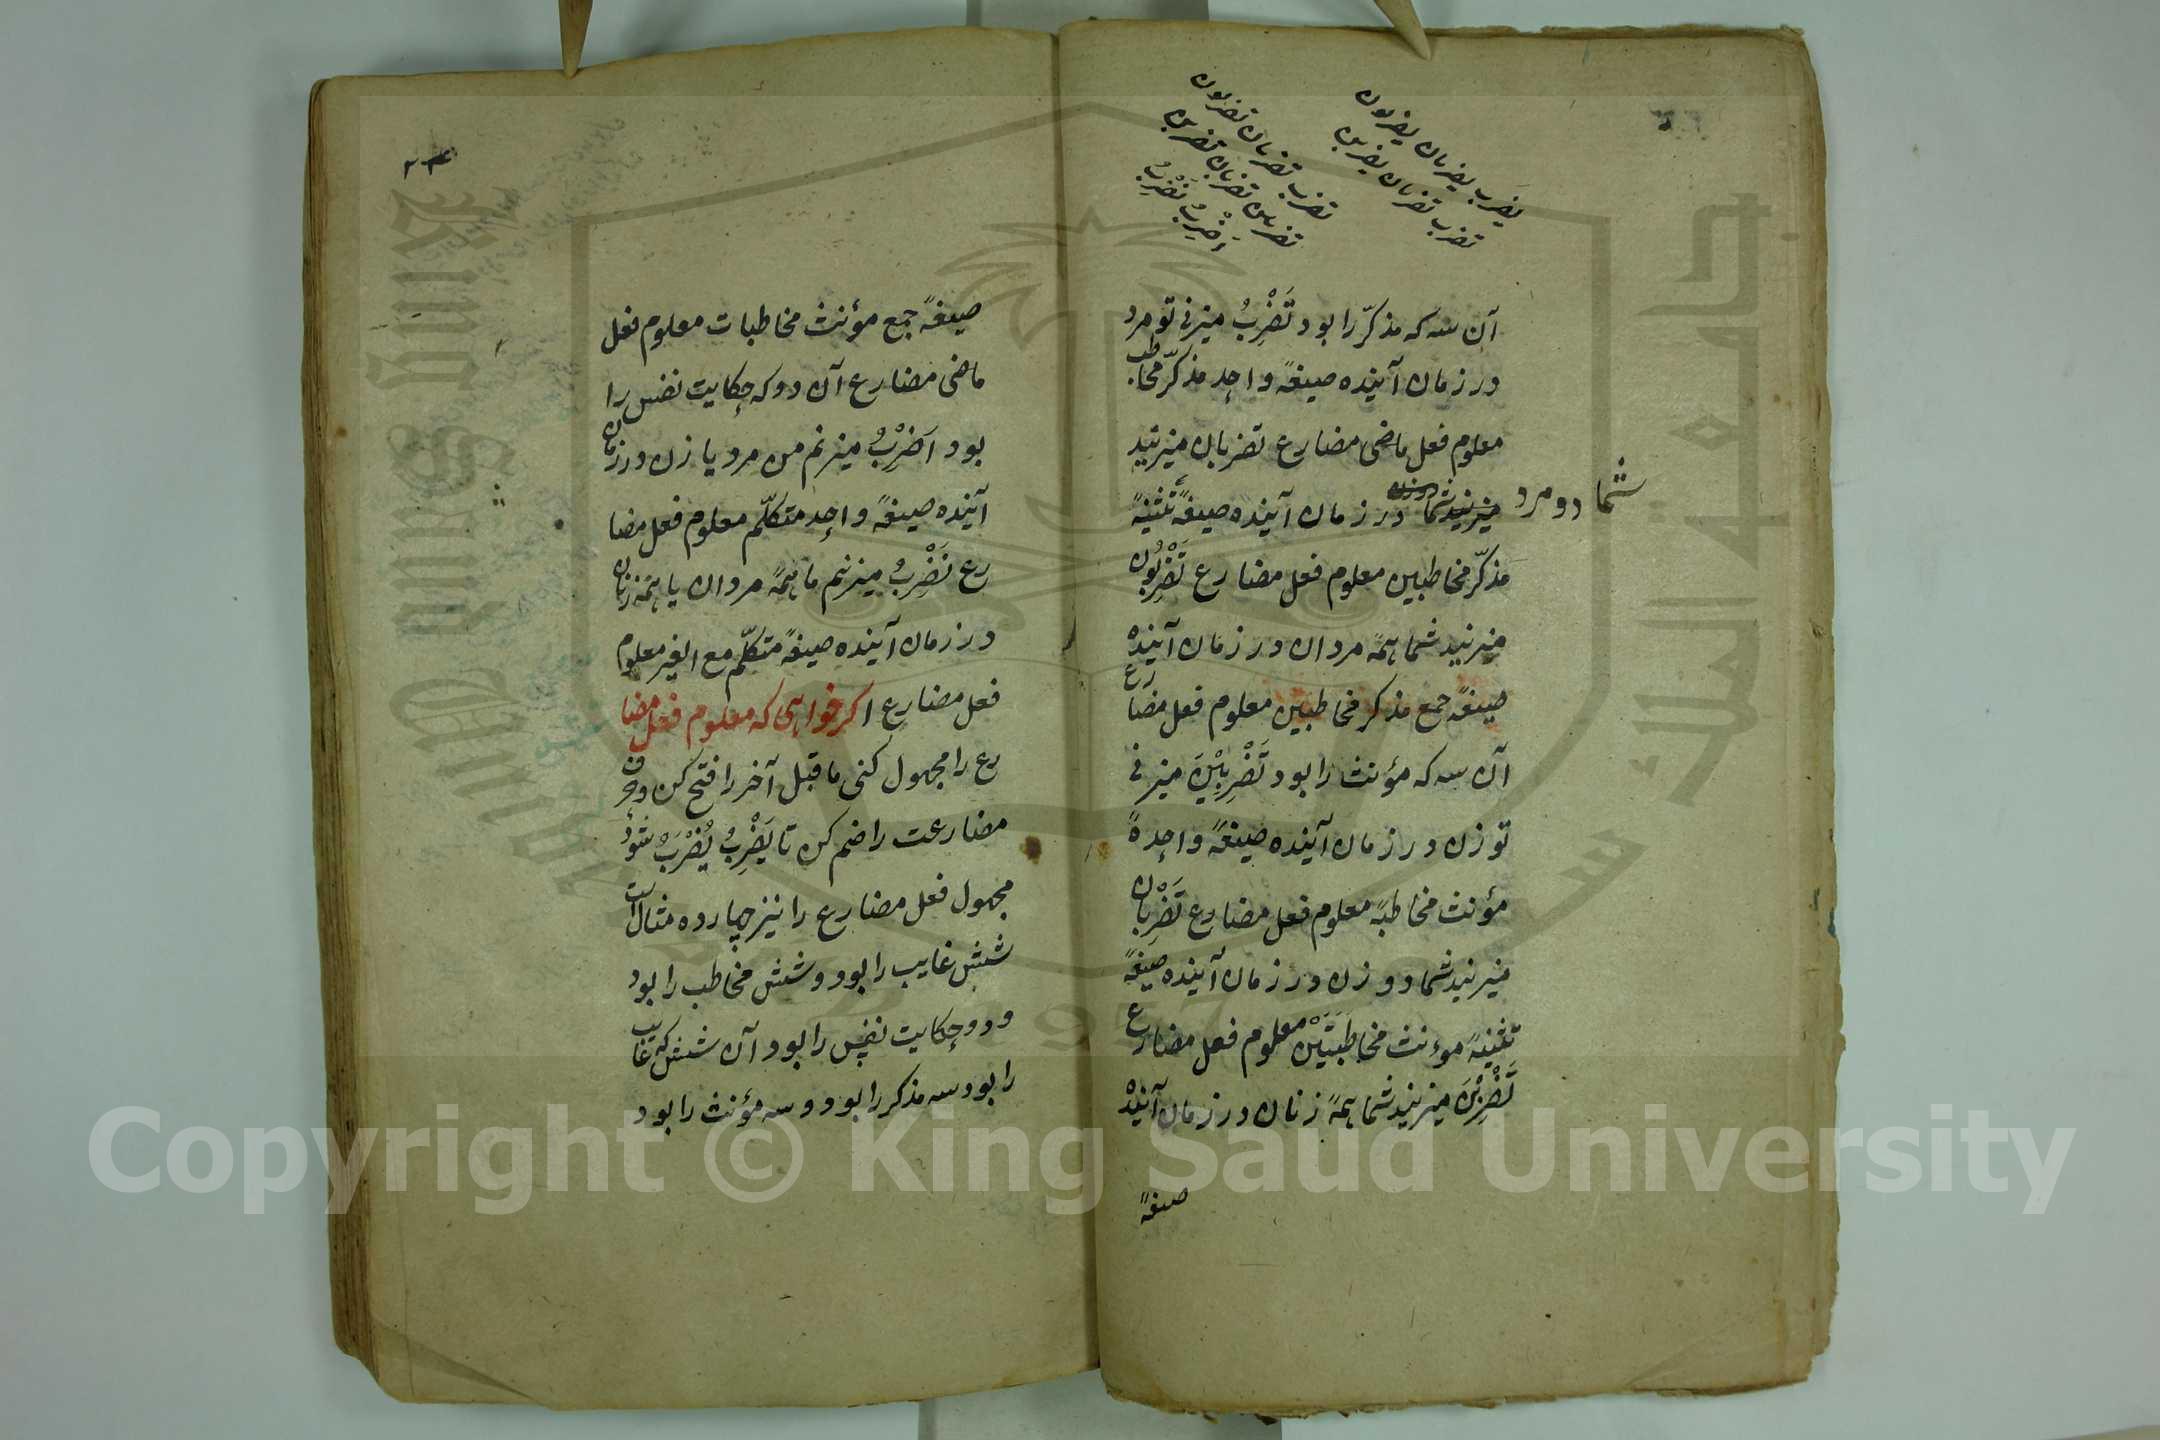 يضرب يضربان يضربون
تضرب تضربان يضربن
تضرب تضربان تضربون
تضربين تضربان تضربن
أَضْرِبُ نَضْرِبُ
آن سه که مذکّر را بود تَضْرِبُ میزنی تو مرد
در زمان آینده صیغهٔ واحد مذکّر مخاطب
معلوم فعل ماضی مضارع تضربان میزنید
میزنید شما در زمان آینده صیغهٔ تثنیهٔ
شما دو مرد
مذکّر مخاطبین معلوم فعل مضارع تَضْرِبُون
میزنید شما همهٔ مردان در زمان آینده
صیغهٔ جمع مذکر مخاطبین معلوم فعل مضارع
آن سه که مؤنث را بود تَضْرِبِیْنَ میزنی
تو زن در زمان آینده صیغهٔ واحدهٔ
مؤنث مخاطبهٔ معلوم فعل مضارع تَضْرِبان
میزنید شما دو زن در زمان آینده صیغهٔ
تثنیهٔ موءنث مخاطَبَتَیْن معلوم فعل مضارع
تَضْرِبْنَ میزنید شما همهٔ زنان در زمان آینده
صیغهٔ
۲۳
صیغهٔ جمع مؤنث مخاطبات معلوم فعل
ماضی مضارع آن دو که حکایت نفس را
بود اَضْرِبُ میزنم من مرد یا زن در زمان
آینده صیغهٔ واحد متکلّم معلوم فعل مضا
رع نَضْرِبُ میزنیم ما همهٔ مردان یا همهٔ زنان
در زمان آینده صیغهٔ متکلّم مع الغیر معلوم
فعل مضارع اکر خواهی که معلوم فعل مضا
رع را مجهول کنی ما قبل آخر را فتح کن و حرف
مضارعت را ضم کن تا یَضْرِبُ یُضْرَبُ شود
مجهول فعل مضارع را نیز چهارده مثال است
شش غایب را بود و شش مخاطب را بود
و دو حکایت نفس را بود آن شش که غایب
را بود سه مذکر را بود و سه مؤنث را بود
Copyright © King Saud University